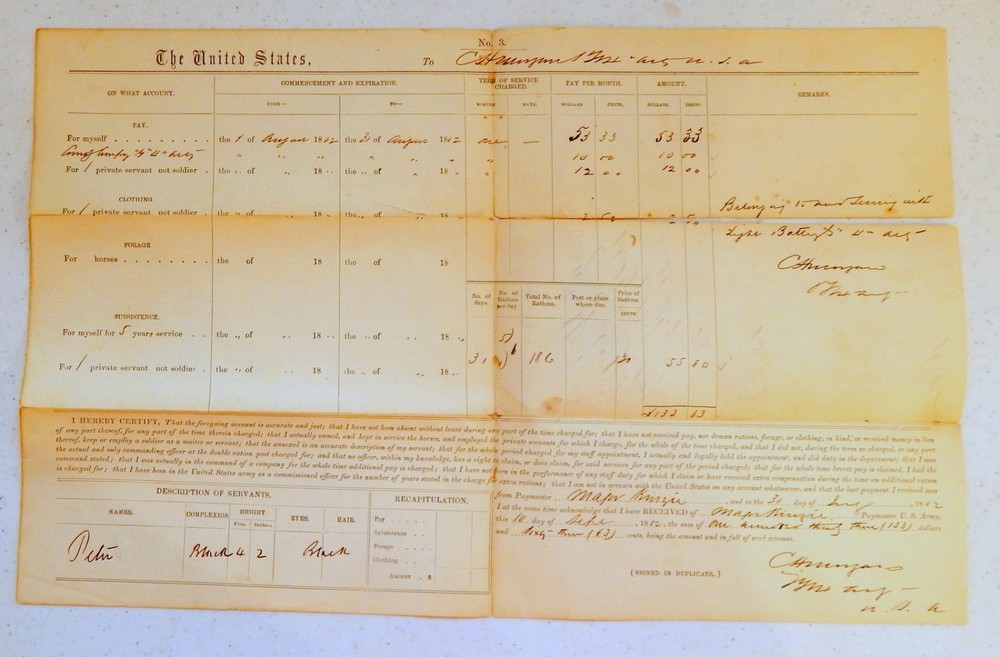 No. 3.
The United States,
To C H Morgan 1st Lt 4" arty U. S. A
ON WHAT ACCOUNT.
COMMENCEMENT AND EXPIRATION.
TERM OF SERVICE CHARGED.
PAY PER MONTH.
AMOUNT.
REMARKS.
FROM— TO— MONTHS DAYS. DOLLARS. CENTS. DOLLARS. CENTS.
PAY.
For myself . . . . . . . . . the 1 of August 1862 the 31 of August 1862 one — 53 33 53 33
" " " " " 10 00 10 00
For 1 private servant not soldier . the " of " 18 " the " of " 18 " " 12 00 12 00
CLOTHING
For 1 private servant not soldier . the " of " 18 " the " of " 18 " " 2 50 2 50
Belonging to and serving with
Light Battery "4" arty
C H Morgan
FORAGE
For horses . . . . . . . . the of 18 the of 18
No. of days. No. of Rations per day. Total No. of Rations. Post or place where due. Price of Rations. CENTS.
SUBSISTENCE.
For myself for 5 years service . . the " of " 18 " the " of " 18 " 5
31 6 186 30 55 80
For 1 private servant not soldier . the " of " 18 " the " of " 18 " 1
$133 63
I HEREBY CERTIFY, That the foregoing account is accurate and just; that I have not been absent without leave during any part of the time charged for; that I have not received pay, nor drawn rations, forage, or clothing, in kind, or received money in lieu
of any part thereof, for any part of the time therein charged; that I actually owned, and kept in service the horses, and employed the private servants for which I charge, for the whole of the time charged, and that I did not, during the term so charged, or any part
thereof, keep or employ a soldier as a waiter or servant; that the annexed is an accurate description of my servant; that for the whole period charged for my staff appointment, I actually and legally held the appointment, and did duty in the department; that I was
the actual and only commanding officer at the double ration post charged for; and that no officer, within my knowledge, has a right to claim, or does claim, for said services for any part of the period charged; that for the whole time brevet pay is claimed, I had the
command stated; that I was actually in the command of a company for the whole time additional pay is charged; that I have not been in the performance of any staff duty for which I claim or have received extra compensation during the time an additional ration
is charged for; that I have been in the United States army as a commissioned officer for the number of years stated in the charge for extra rations; that I am not in arrears with the United States on any account whatsoever, and that the last payment I received was
from Paymaster Major Kinzie and to the 31 day of July , 1862
I at the same time acknowledge that I have RECEIVED of Major Kinzie Paymaster U. S. Army,
this 10 day of Sept 1862, the sum of one hundred thirty three (133) dollars
and sixty three (63) cents, being the amount and in full of said account.
DESCRIPTION OF SERVANTS.
NAMES. COMPLEXION HEIGHT EYES. HAIR.
Feet. Inches.
Peter Black 4 2 Black
RECAPITULATION.
Pay . . .
Subsistence . .
Forage . . .
Clothing . .
AMOUNT . $
(SIGNED IN DUPLICATE.)
C H Morgan
1st Lt 4" arty
U. S. A